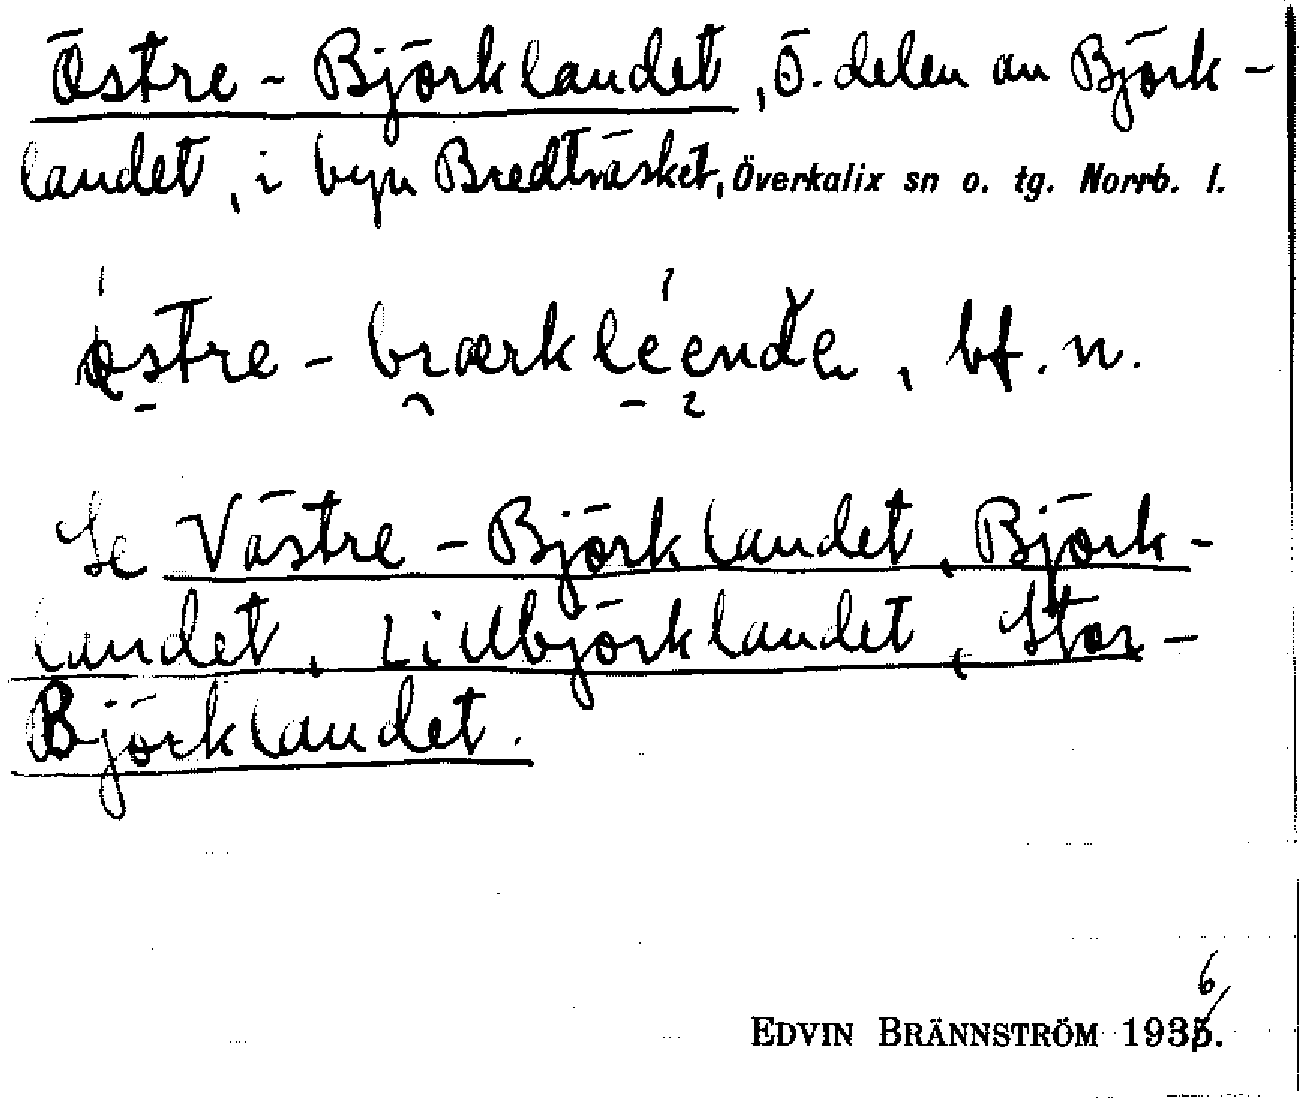 Östre-Björklandet, Ö. delen av Björk-
landet, i byn Bredträsket, Överkalix sn o. tg. Norrb. l.
bf. n.
Se Västre-Björklandet, Björk-
landet, Lillbjörklandet, Stor-
Björklandet.
6
EDVIN BRÄNNSTRÖM 1935.